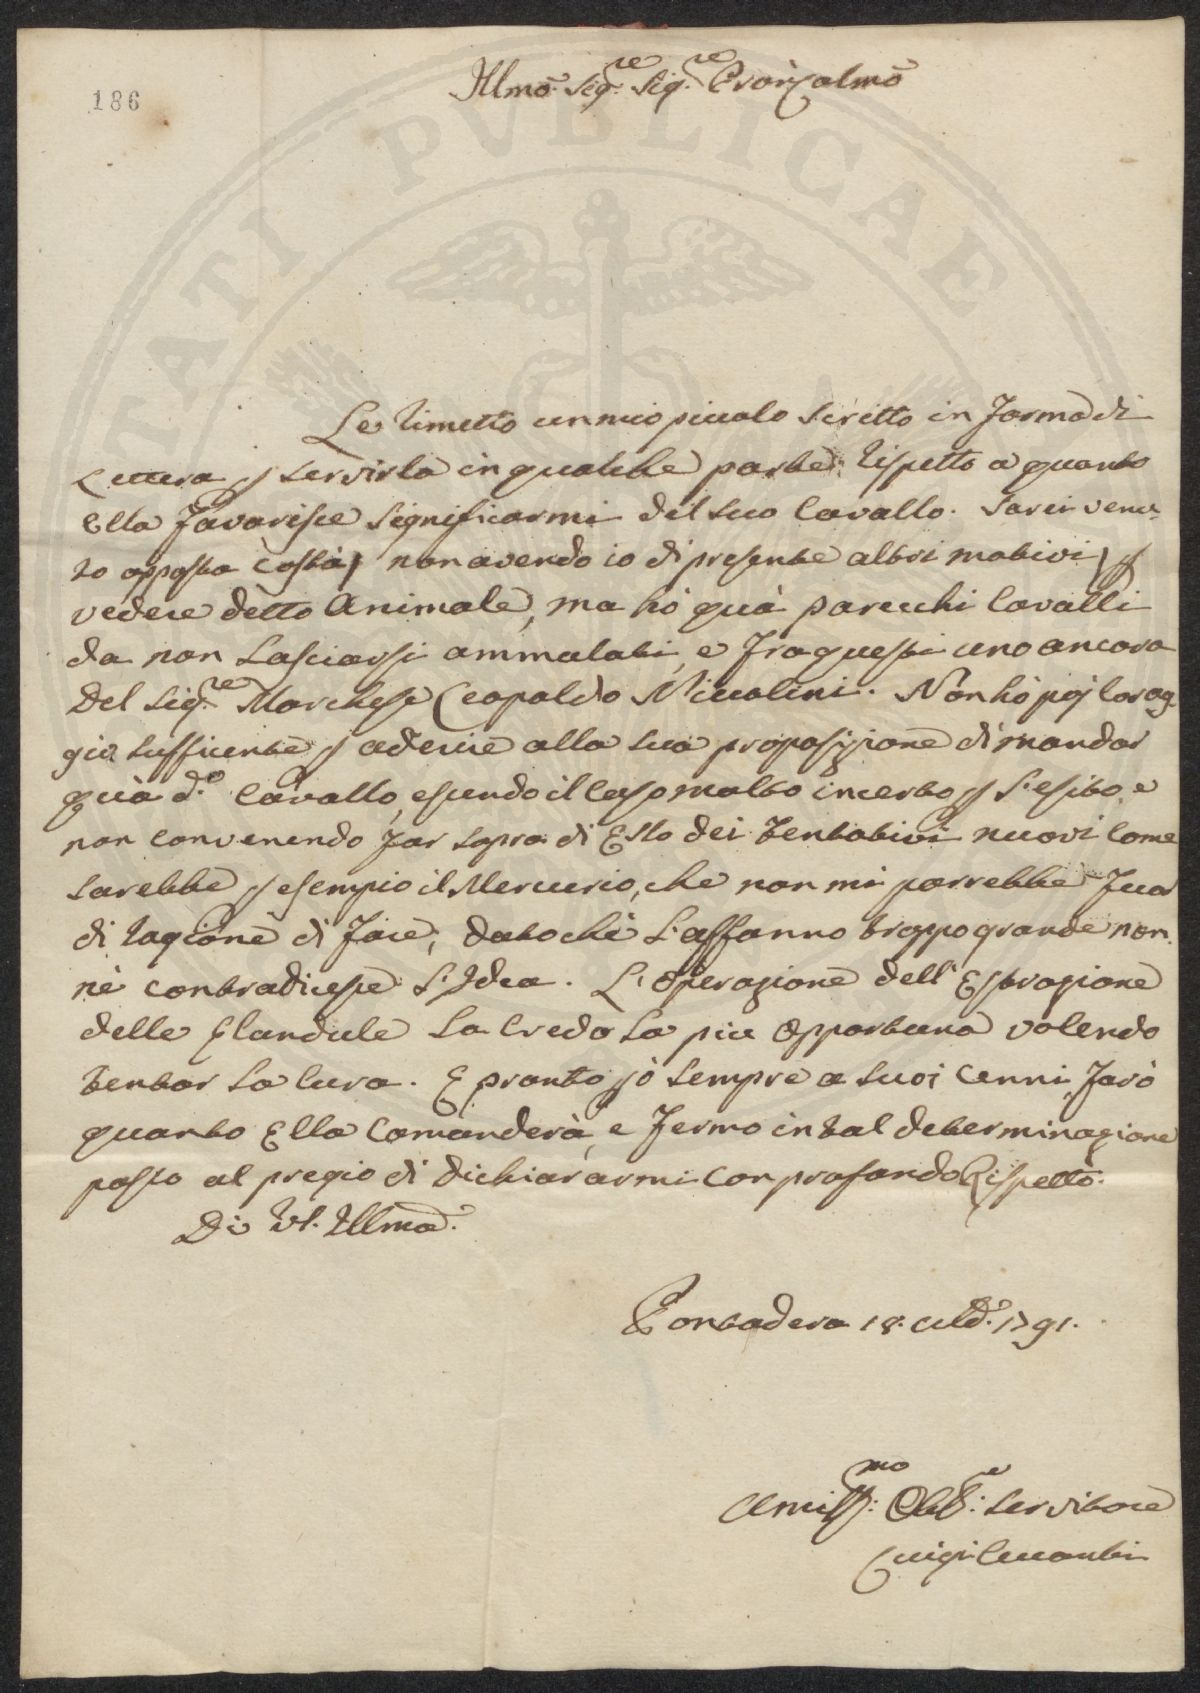 186
Illmo. Sig.re Sig.re Pron Colmo
Le rimetto un mio piccolo scritto in forma di
Lettera p servirla in qualche parte rispetto a quanto
Ella favorisce significarmi del suo Cavallo. Sarei venu-
to apposta costà, non avendo io di presente altri motivi p
vedere detto Animale, ma hò quà parecchi Cavalli
da non lasciarsi ammalati, e fra questi uno ancora
Del Sig.re Marchese Leopoldo Niccolini. Non hò poj Corag-
gio sufficiente p aderire alla sua proposizione di mandar
quà d.o Cavallo, essendo il Caso molto incerto p l'esito, e
non convenendo far sopra di Esso dei tentativi nuovi Come
sarebbe p esempio il Mercurio, che non mi parrebbe fuor
di ragione di fare, dato chè l'affanno troppo grande non
nè contradicesse l'Idea. L'Operazione dell'Estrazione
delle Glandule la Credo la piu Opportuna volendo
tentar la Cura. E pronto p ò sempre a suoi Cenni, farò
quanto Ella Comanderà, e fermo in tal determinazione
passo al pregio di dichiararmi con profondo Rispetto.
Di VS. Illma.
Pontadera 18. 1791.
Umiliss.mo Obb.e Servitore
Luigi
PVBLICAE